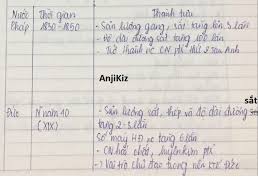 Nước Thời gian Thành tựu
Pháp 1830 - 1850 - Sản lượng gang, sắt tăng lên 3 lần
- Độ dài đường sắt tăng lần
- Trở thành nc CN pt thứ 2 sau Anh
AnjiKiz
sắt
Đức N năm 40 - Sản lượng sắt, thép và độ dài đường
(XIX) tăng 2-3 lần
Số máy HN nc tăng 6 lần
- CN hóa chất, luyện kim pt
- Vai trò chủ đạo trong nền KT Đức